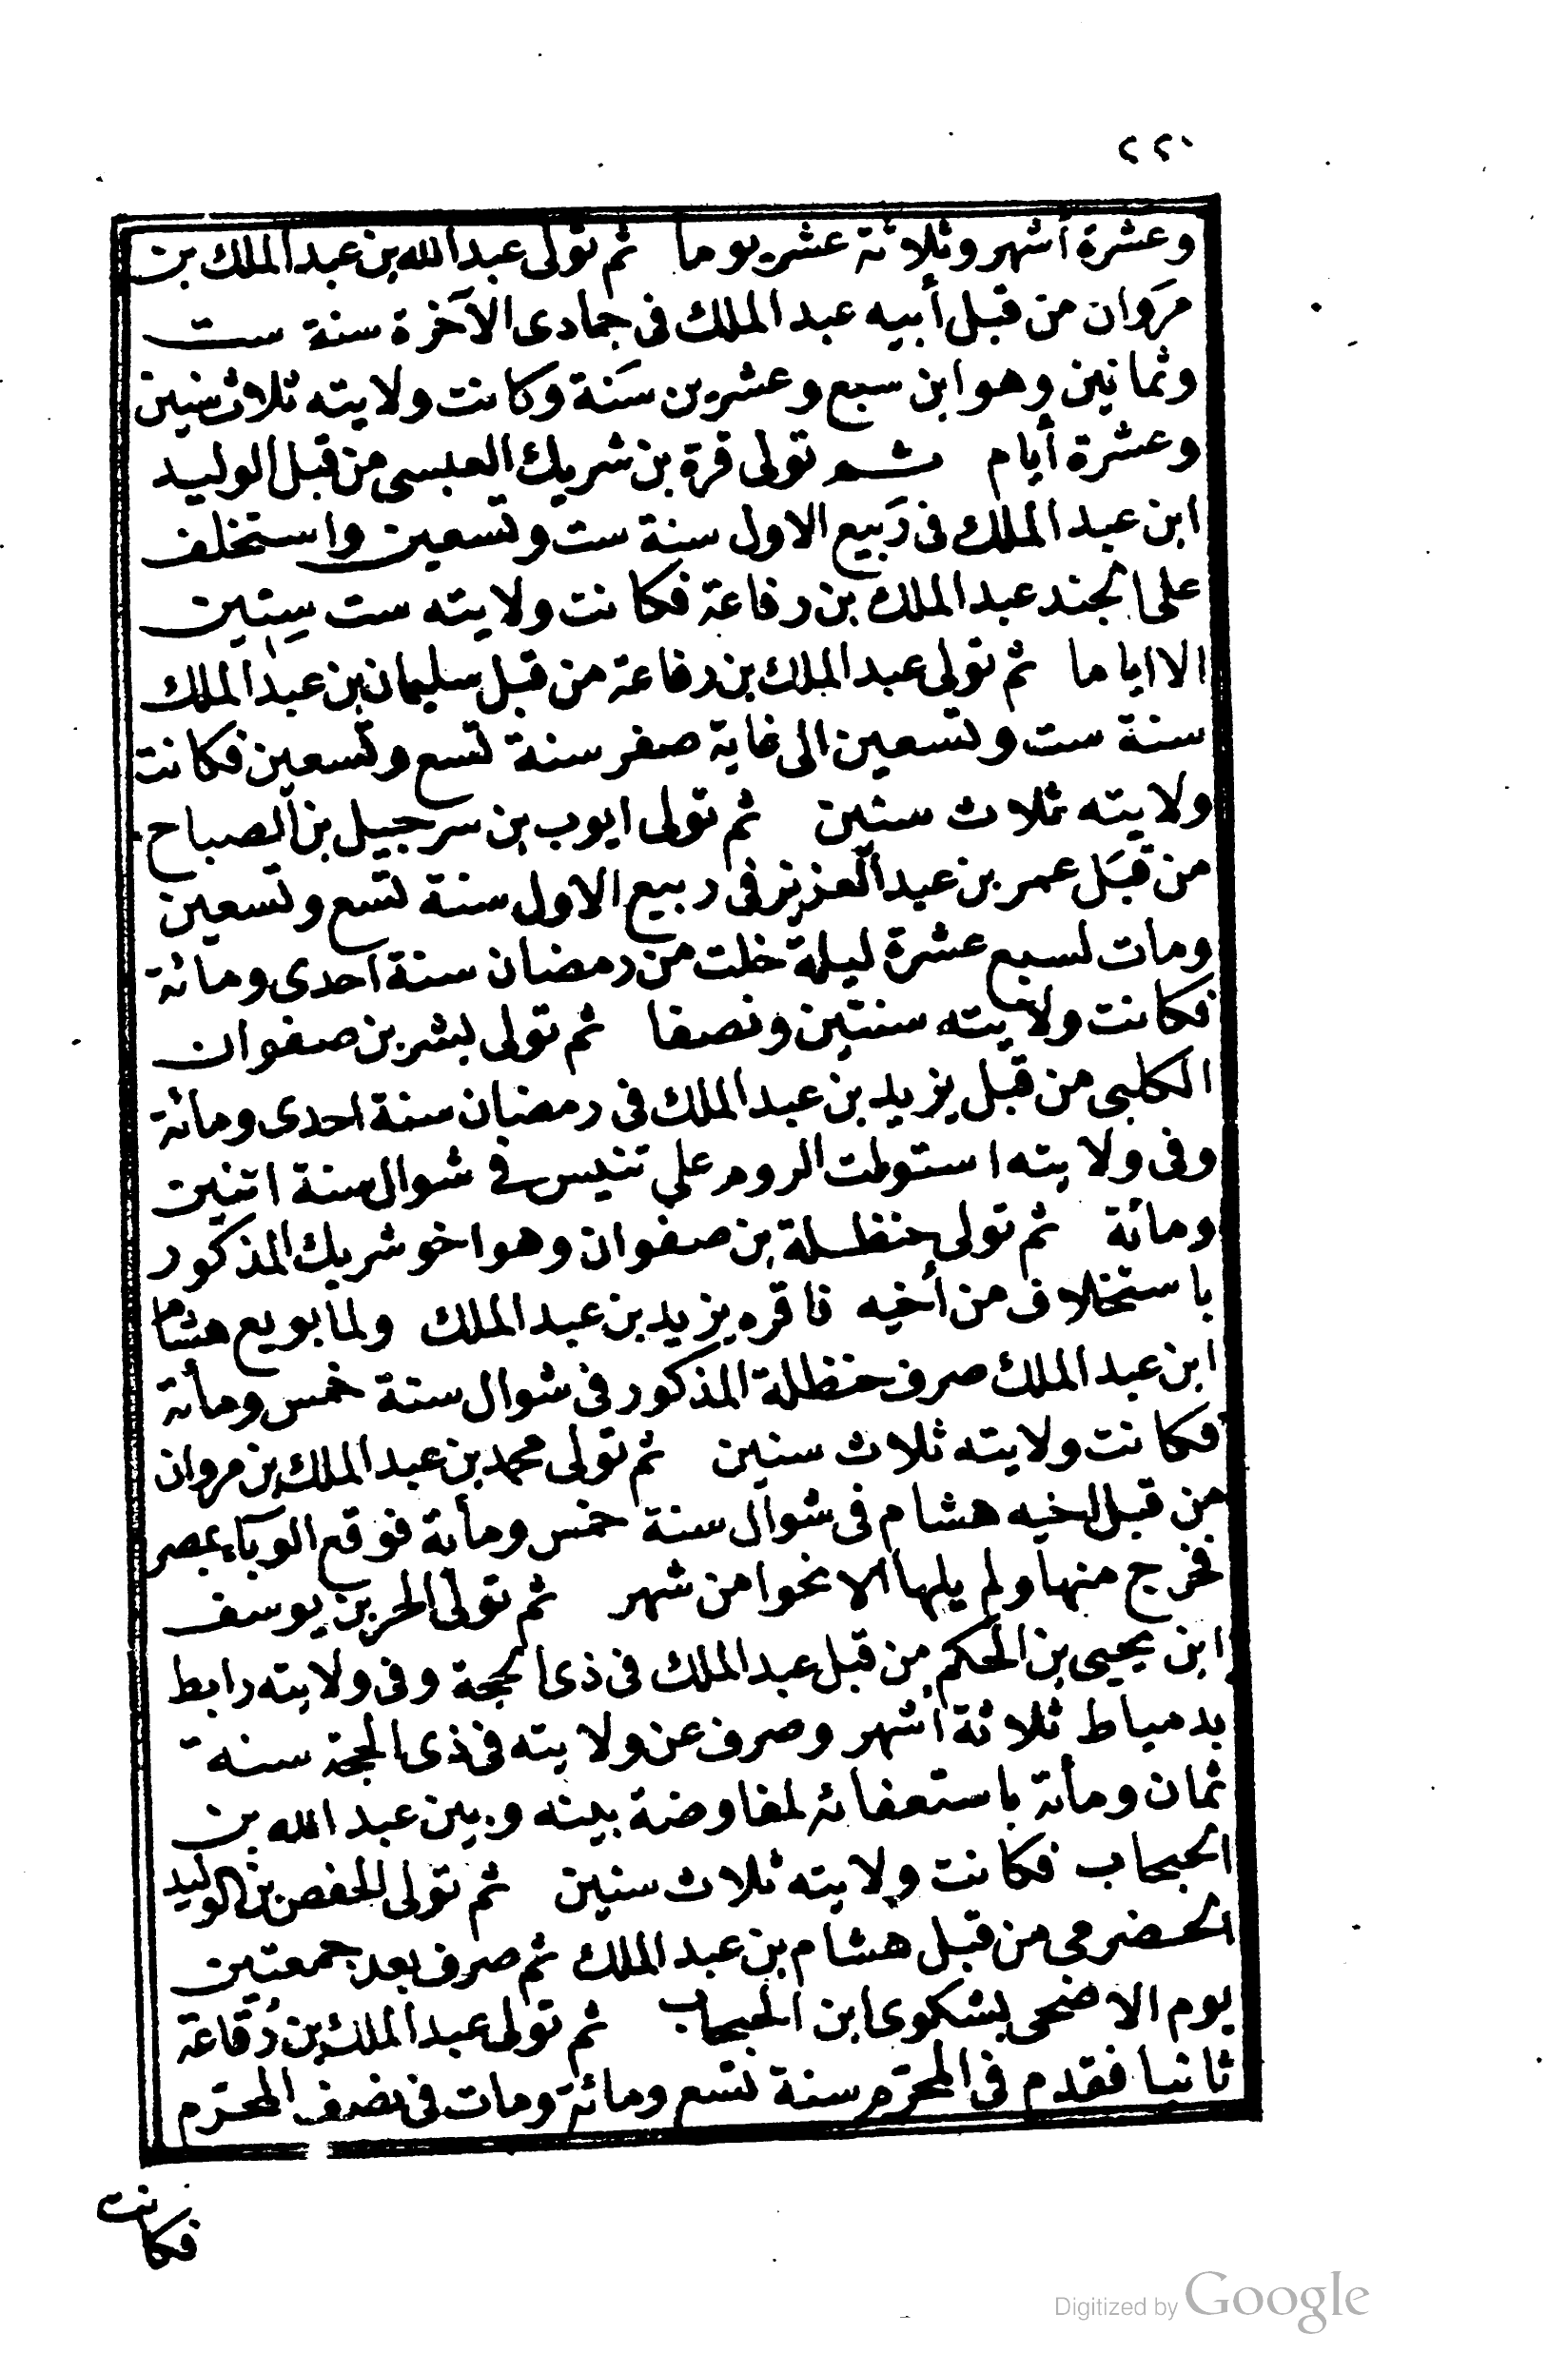 ٢٢٠
وعشرة أشهر وثلاثة عشر يوما ثم تولى عبد الله بن عبد الملك بن
مَروان من قبل أبيه عبد الملك فى جمادى الآخرة سنة ست
وثمانين وهو ابن سبع وعشرين سَنة وكانت ولايته ثلاث سنين
وعشرة أيام ثم تولى قرة بن شريك العبسى من قبل الوليد
ابن عبد الملك فى رَبيع الاول سنة ست وتسعين واستخلف
على الجند عبد الملك بن رفاعة فكانت ولايته ست سنين
الا اياما ثم تولى عبد الملك بن رفاعة من قبل سليمان بن عبد الملك
سنة ست وتسعين الى غاية صفر سنة تسع وتسعين فكانت
ولايته ثلاث سنين ثم تولى ايوب بن سرجيل بن الصباح
من قبَل عمر بن عبد العزيز فى ربيع الاول سنة تسع وتسعين
ومات لسبع عشرة ليلة خلت من رمضان سنة احدى ومائة
فكانت ولايته سنتين ونصفا ثم تولى بشر بن صفوان
الكلبى من قبل يزيد بن عبد الملك فى رمضان سنة احدى ومائة
وفى ولايته استولت الروم على تنيس فى شوال سنة اثنين
ومائة ثم تولى حنظلة بن صفوان وهو اخو شريك المذكور
باستخلاف من أخيه فاقره يزيد بن عبد الملك ولما بويع هشام
ابن عبد الملك صرف حنظلة المذكور فى شوال سنة خمس ومأئة
فكانت ولايته ثلاث سنين ثم تولى محمد بن عبد الملك بن مروان
من قبل اخيه هشام فى شوال سنة خمس ومأئة فوقع الوبآ بمصر
فخرج منها ولم يلها الا نحوا من شهر ثم تولى الحر بن يوسف
ابن يحيى بن الحكم من قبل عبد الملك فى ذى الحجة وفى ولايته رابط
بدمياط ثلاثة أشهر وصرف عن ولايته فى ذى الحجة سنة
ثمان ومأئة باستعفائه لمفاوضة بينه وبين عبد الله بن
الحبحاب فكانت ولايته ثلاث سنين ثم تولى الحفص بن الوليد
الحضرمى من قبل هشام بن عبد الملك ثم صرف بعد جمعتين
يوم الاضحى بشكوى ابن الحبحاب ثم تولى عبد الملك بن رُفاعة
ثانيا فقدم فى المحرّم سنة تسع ومائة ومات فى نصف المحرّم
فكانت
Digitized by Google